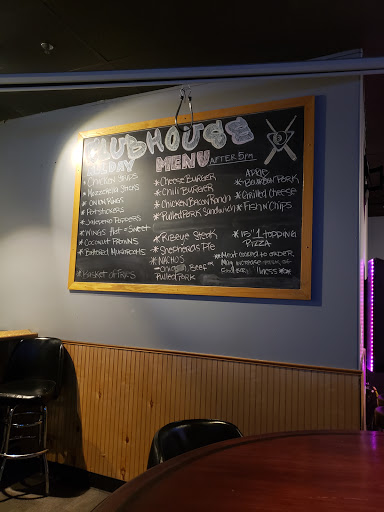 CLUBHOUSE
MENU
AFTER 5PM
* Chicken Strips
* Mozzarella Sticks
* Onion Rings
* Potskins
* Jalapeno Poppers
* Wings Hot or Sweet
* Coconut Prawns
* Battered Mushrooms
* Basket of Fries
* Cheese Burger
* Chili Burger
* Chicken Bacon Ranch
* Pulled Pork Sandwich
* Ribeye Steak
* Shepherds Pie
* NACHOS
Chicken, Beef or
Pulled Pork
* Bourbon Pork
* Grilled Cheese
* Fish n Chips
* 15" 1-TOPPING
PIZZA
* Meat cooked to order
May increase risk of
Food borne illness *